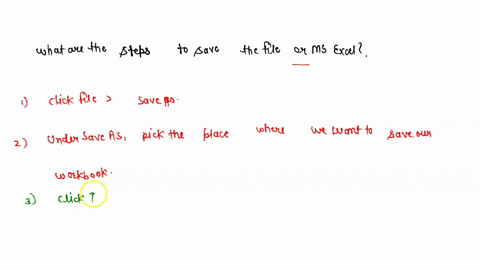 what are the steps to save the file or MS Excel?
1) click file > save As.
2) Under save AS, pick the place where we want to save our
workbook.
3) click ↑